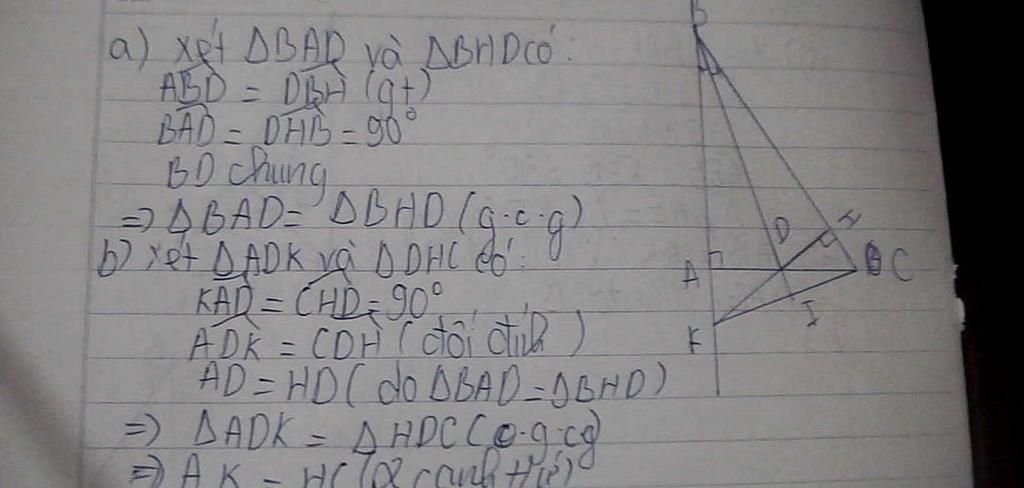 a) Xét ΔBAD và ΔBHD có:
ABD = DBH (gt)
BAD = DHB = 90°
BD chung
=> ΔBAD = ΔBHD (g.c.g)
b) Xét ΔADK và ΔDHC có:
KAD = CHD = 90°
ADK = CDH (đối đỉnh)
AD = HD (do ΔBAD = ΔBHD)
=> ΔADK = ΔHDC (g.cg)
=> AK = HC (2 cạnh
B
D
H
A
C
I
K